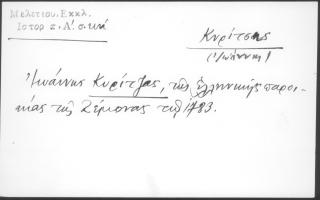 Μελετίου. Εκκλ.
Ιστορ τ. Α΄. σ.
Κυρίτσης
(Ἰωάννης)
Ἰωάννης Κυρίτζας, τῆς ἑλληνικῆς παροι-
κίας τῆς Ζέμονας τῷ 1783.